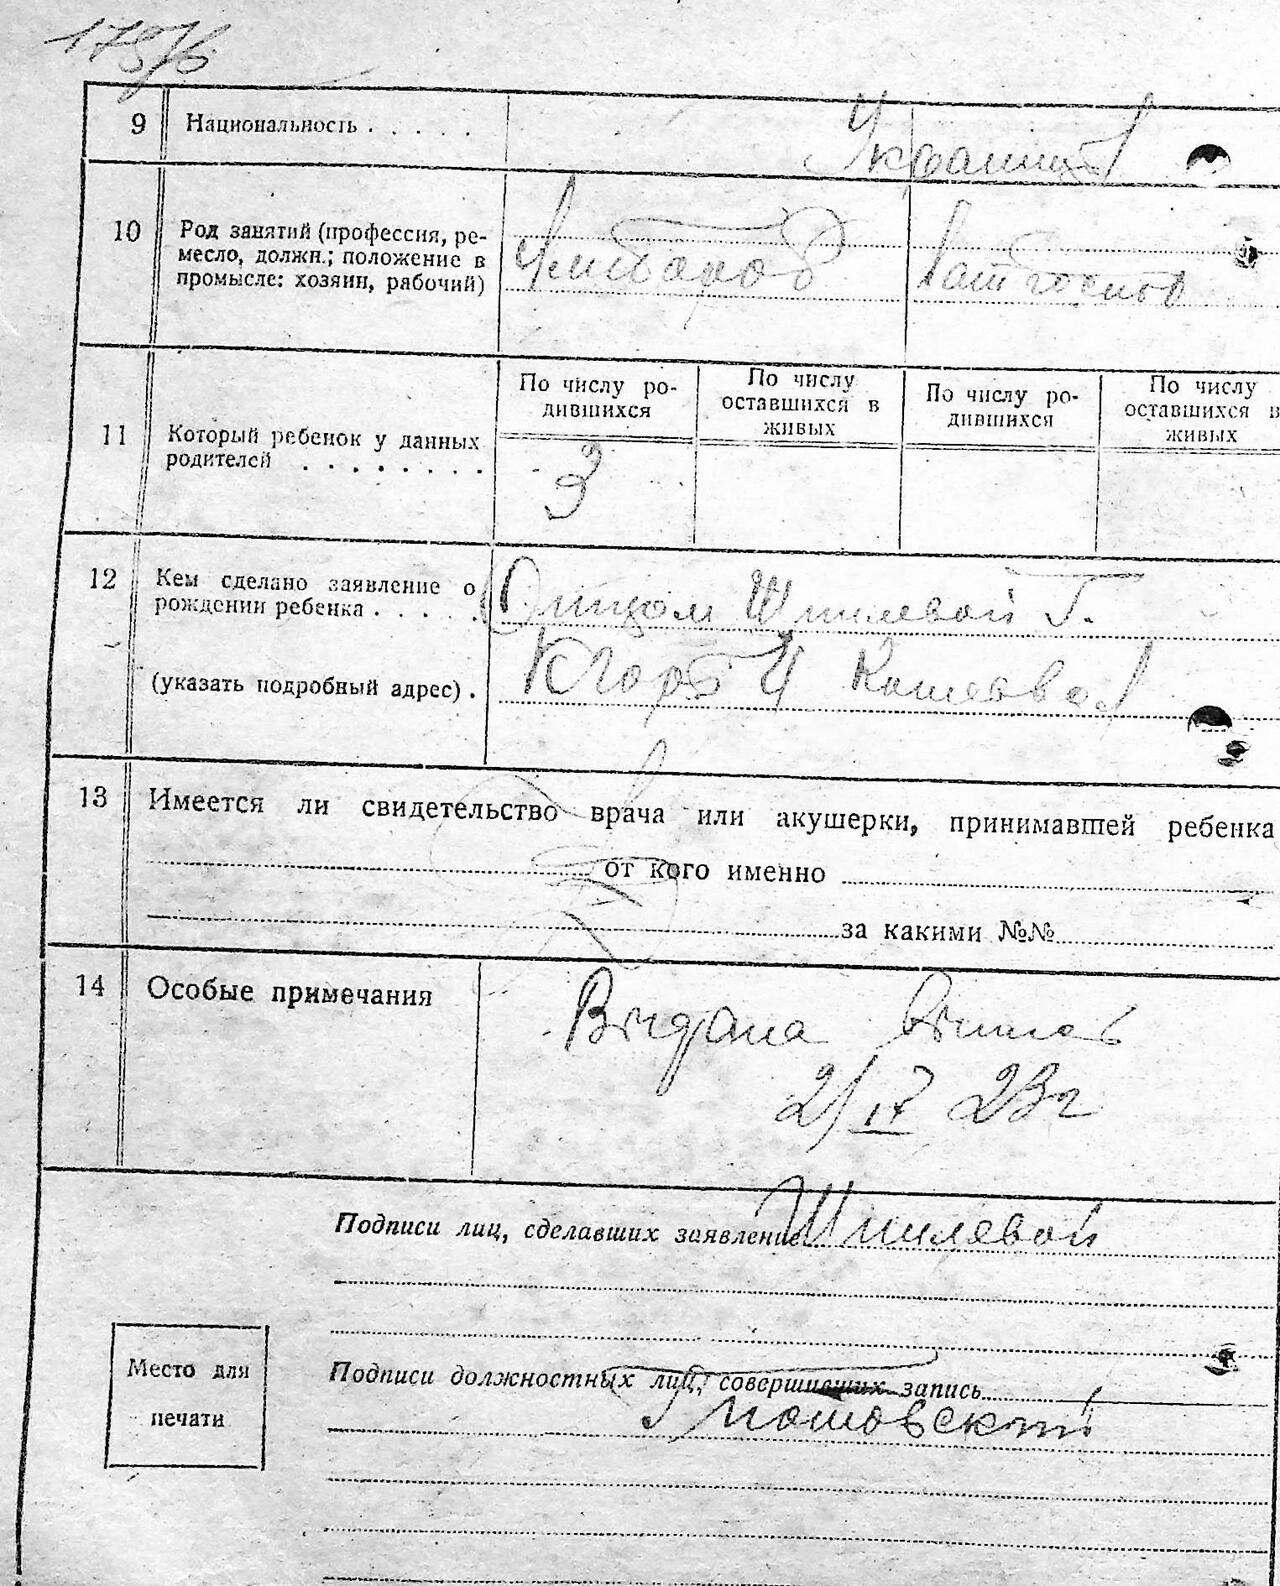 9 Национальность . . . . .
Украинцы
10 Род занятий (профессия, ре-
месло, должн.; положение в
промысле: хозяин, рабочий)
По числу ро-
дившихся
По числу
оставшихся в
живых
По числу ро-
дившихся
По числу
оставшихся в
живых
11 Который ребенок у данных
родителей . . . . . . . .
3
12 Кем сделано заявление о
рождении ребенка . . . .
Отцом Шпилевой Г.
(указать подробный адрес) .
13 Имеется ли свидетельство врача или акушерки, принимавшей ребенка
от кого именно
за какими №№
14 Особые примечания
Видана
2/IV 23г
Подписи лиц, сделавших заявление Шпилевой
Подписи должностных лиц, совершивших запись
Место для
печати